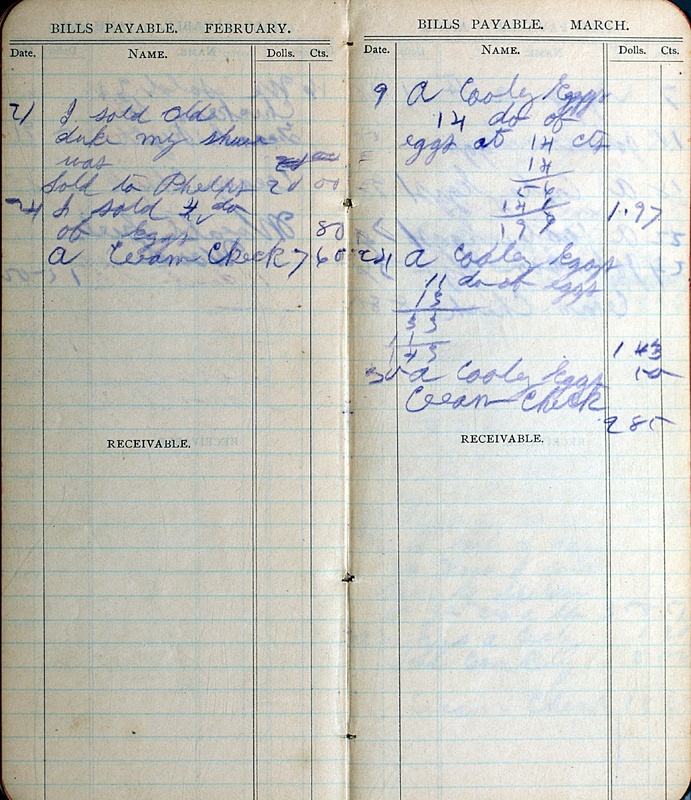 BILLS PAYABLE. FEBRUARY.
Date. NAME. Dolls. Cts.
21 I sold Old
duke my share
was
Sold to Phelps 20 00
24 I sold 4 do
of eggs 80
A Cream Check 7 60
RECEIVABLE.
BILLS PAYABLE. MARCH.
Date. NAME. Dolls. Cts.
9 A Cooley Eggs
14 do of
eggs at 14 cts
14
56
14
199 1.97
24 A Cooley Eggs
11 do of eggs
13
33
11
143 1 43
30 A Cooley Eggs
Cream Check
9 85
RECEIVABLE.